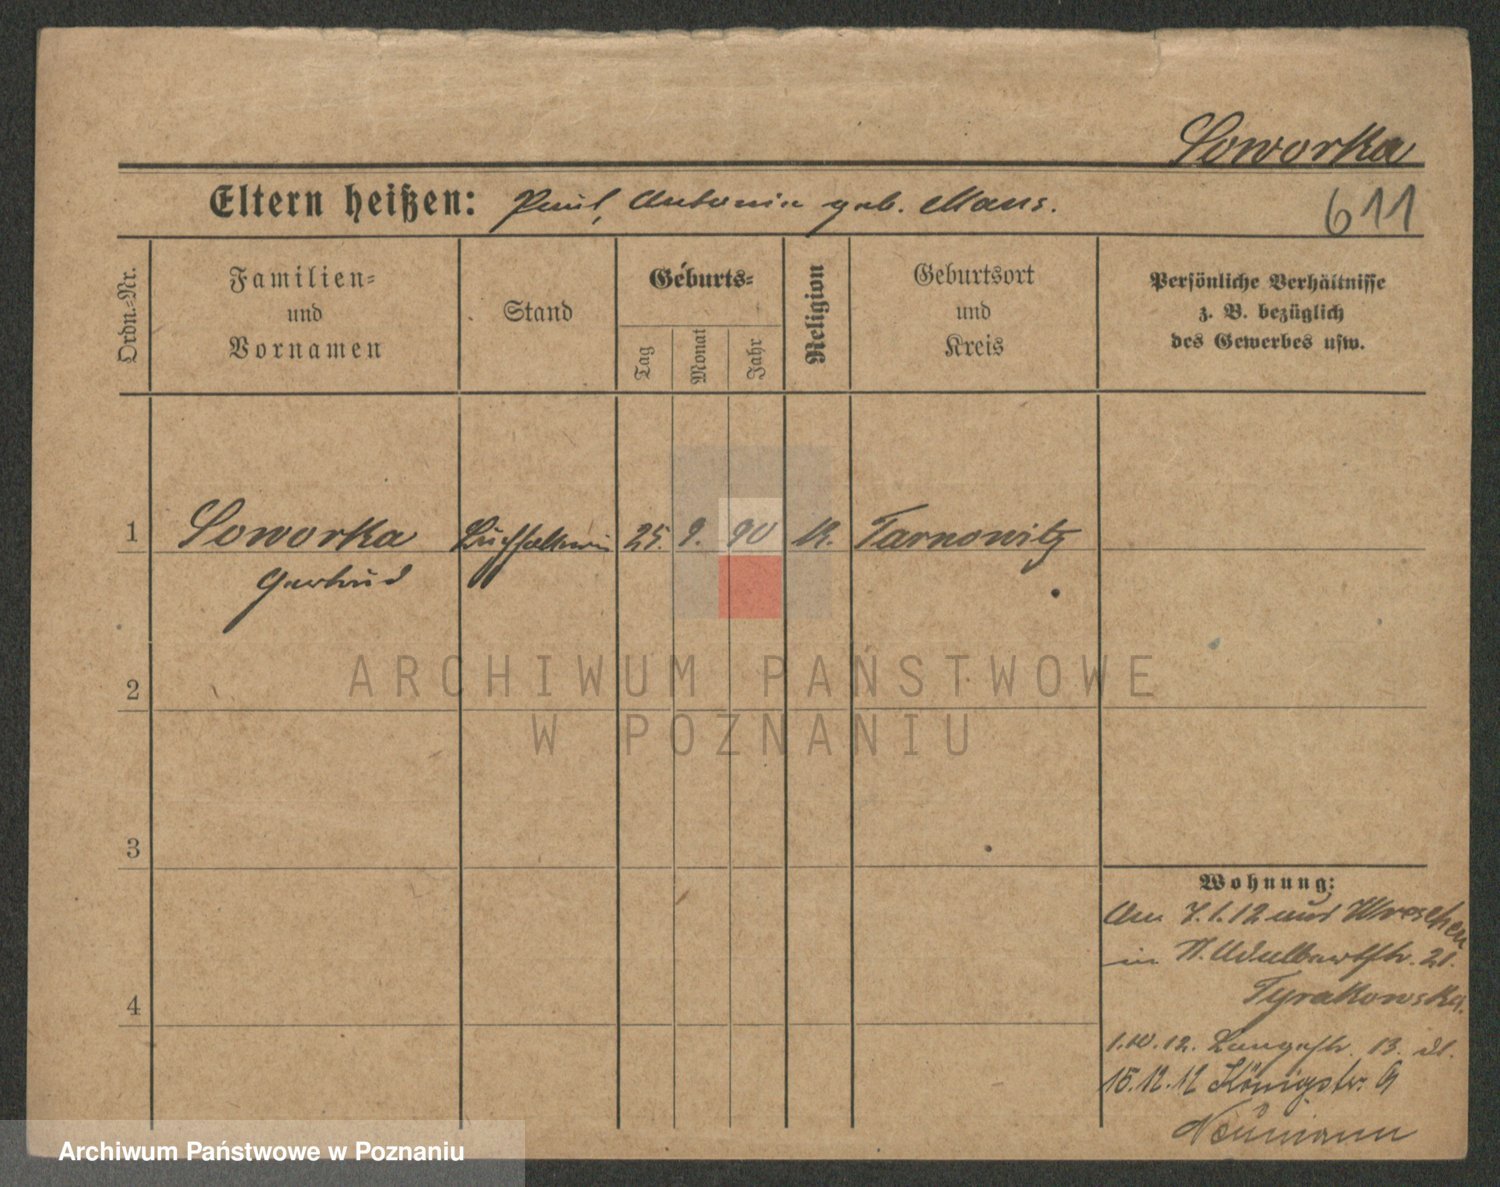 Soworka
Eltern heißen: Paul, Antonia geb. Mans.
611
Ordn.-Nr.
Familien-
und
Vornamen
Stand
Geburts-
Tag
Monat
Jahr
Religion
Geburtsort
und
Kreis
Persönliche Verhältnisse
z. B. bezüglich
des Gewerbes usw.
1 Soworka 25. 9. 90 K. Tarnowitz
Gertrud
2
3
4
ARCHIWUM PAŃSTWOWE
W POZNANIU
Wohnung:
Am 7.1.12 aus Wreschen
in Adalbertstr. 21.
Tyrakowska.
1.10.12. Langestr. 13.
15.12.12 Königstr. 9
Neumann
Archiwum Państwowe w Poznaniu